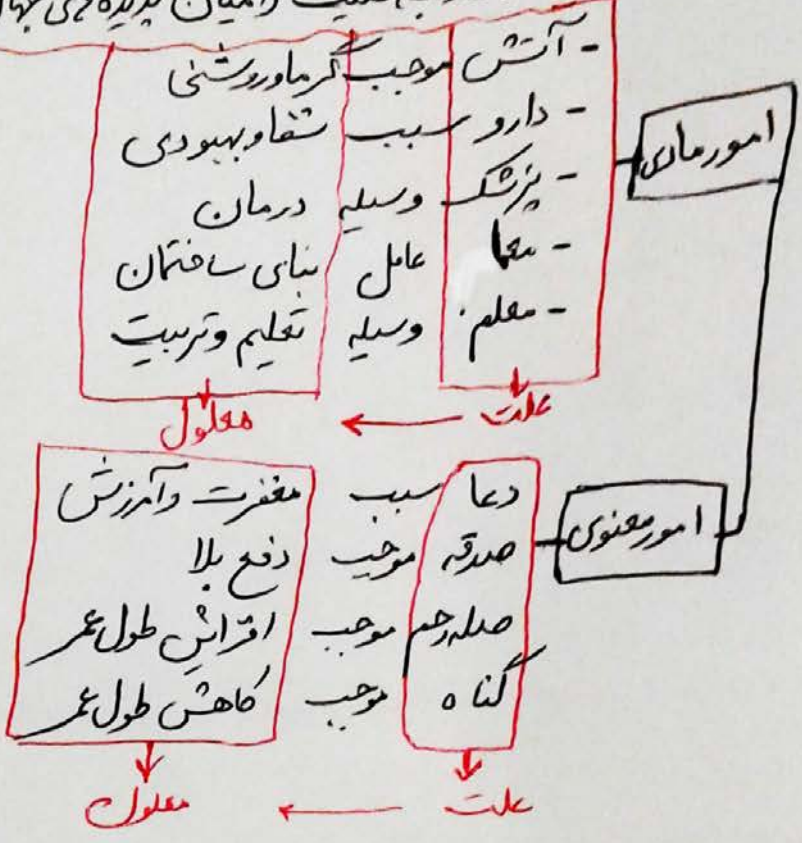 علیت در میان پدیده های جهان
امور مادی
- آتش موجب گرما و روشنی
- دارو سبب شفا و بهبودی
- پزشک وسیله درمان
- معمار عامل بنای ساختمان
- معلم وسیله تعلیم و تربیت
علت ← معلول
امور معنوی
دعا سبب مغفرت و آمرزش
صدقه موجب دفع بلا
صله رحم موجب افزایش طول عمر
گناه موجب کاهش طول عمر
علت ← معلول